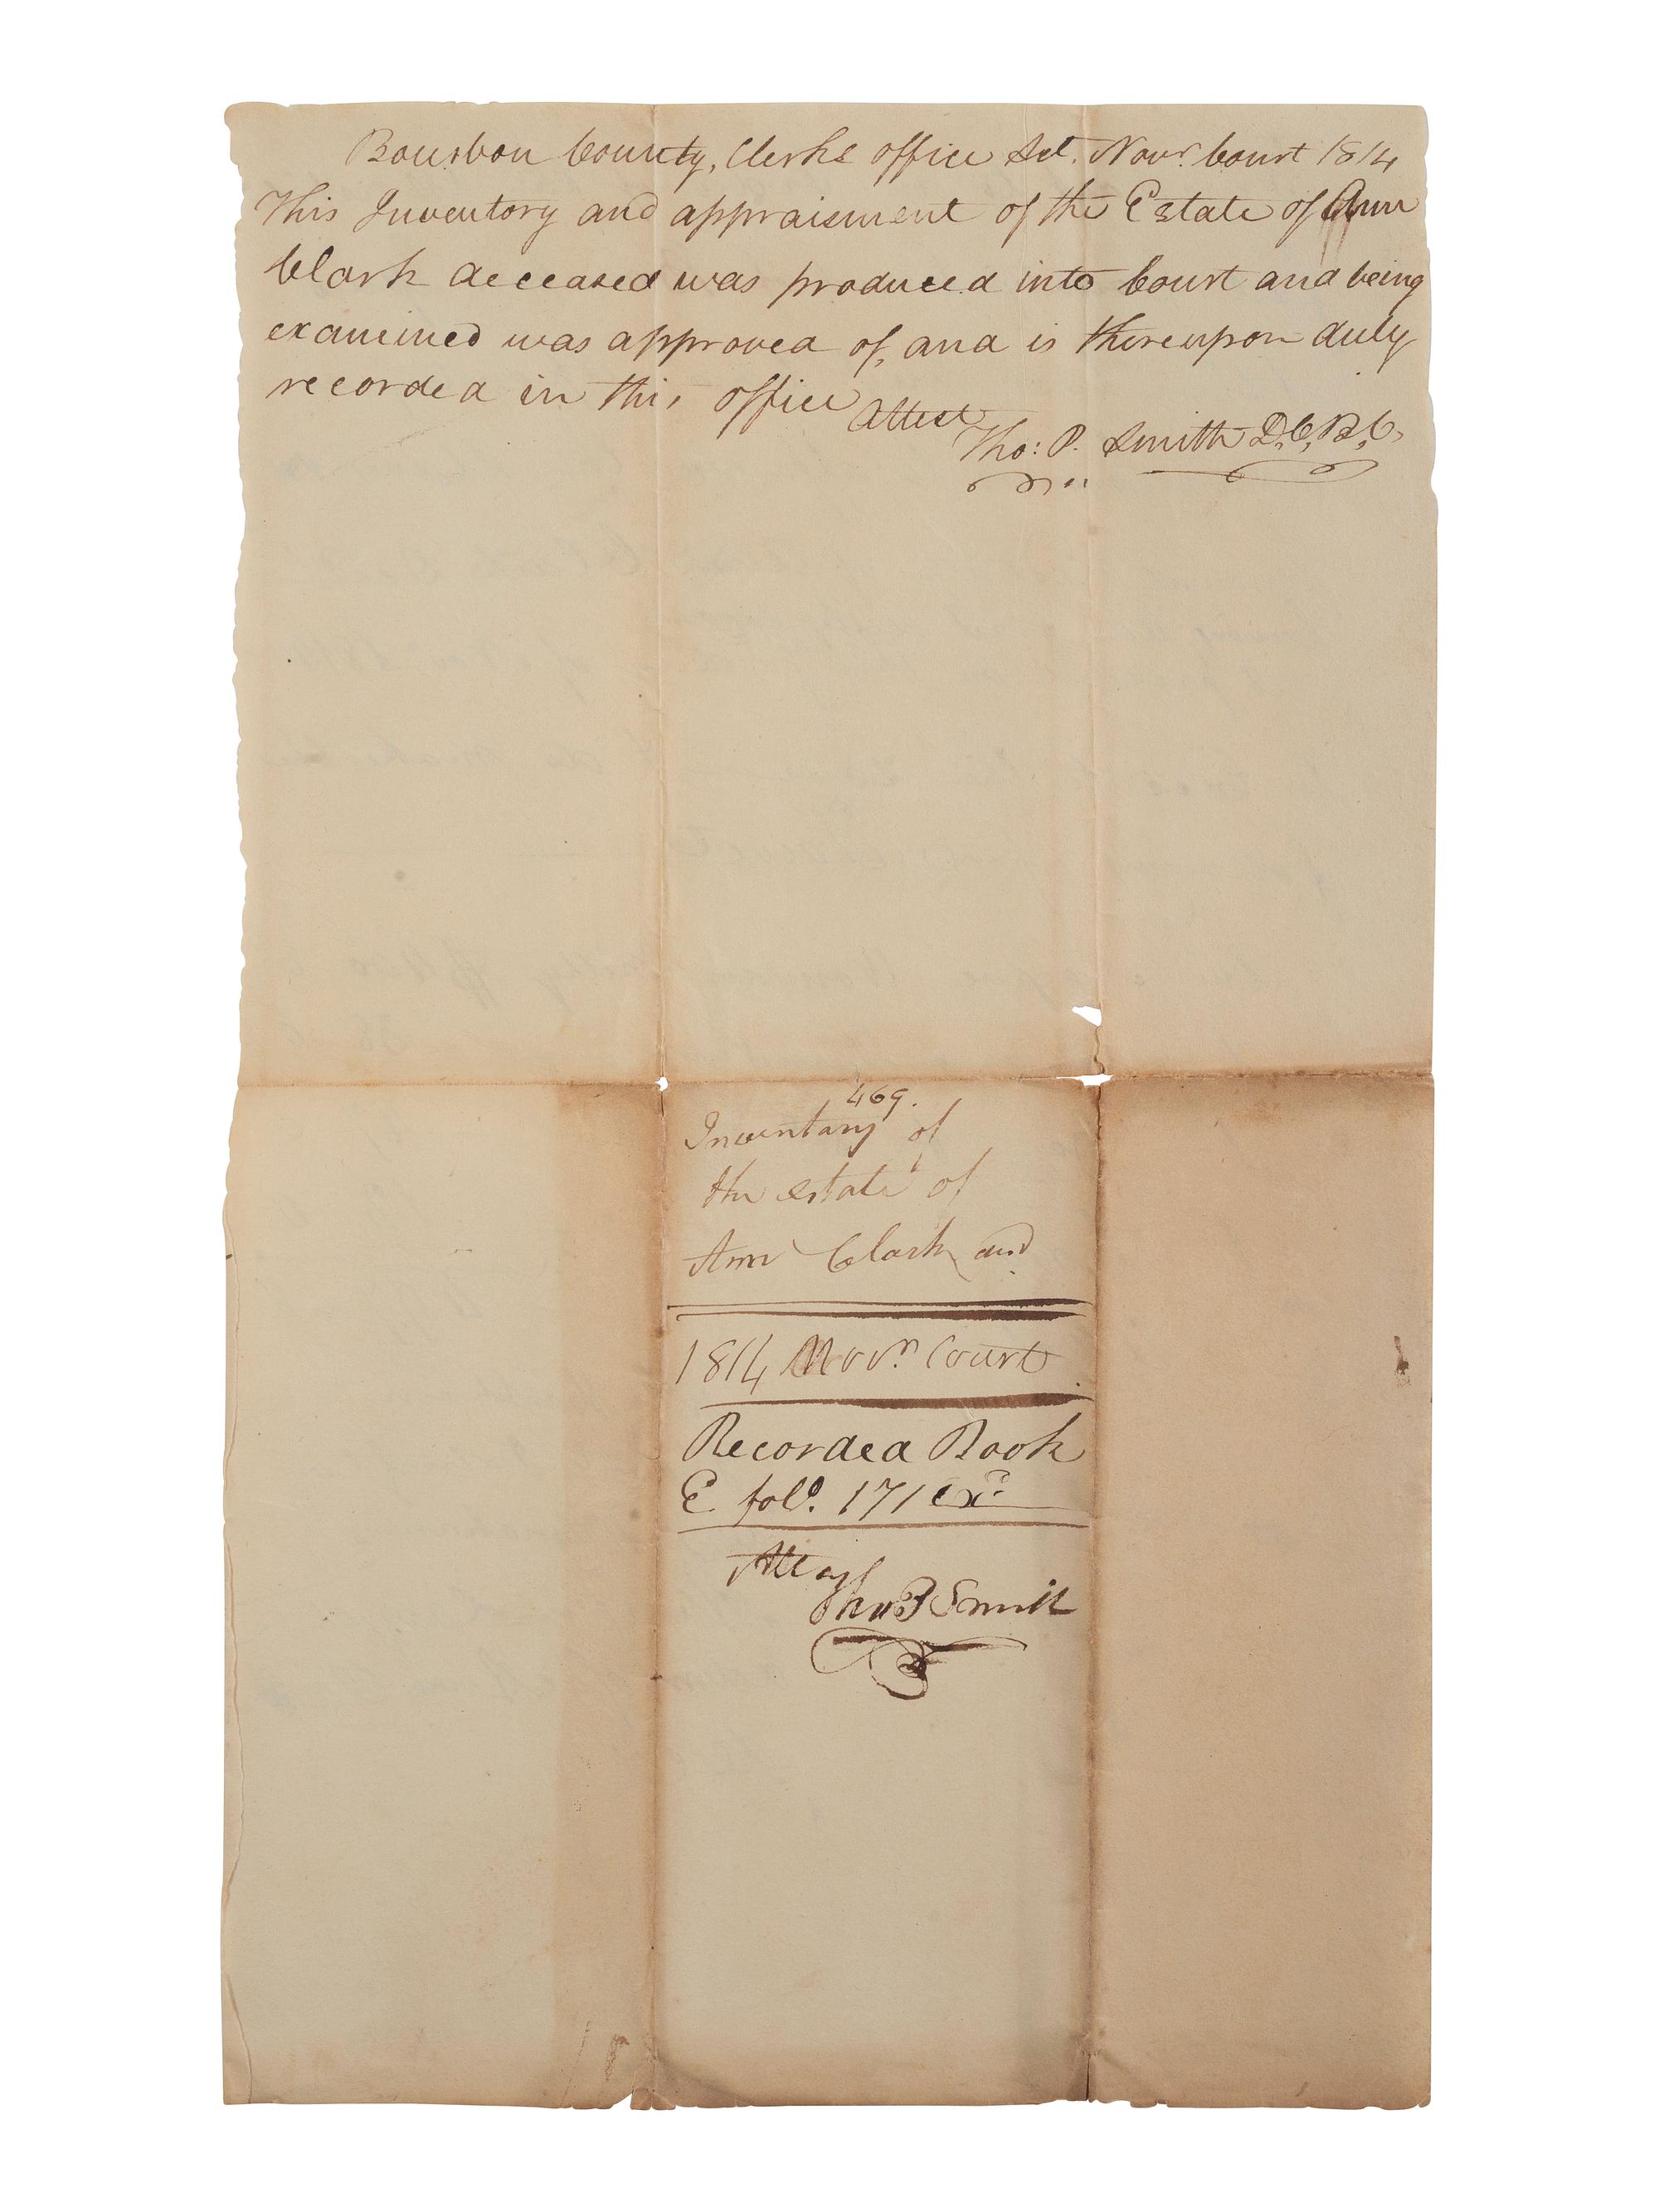 Bourbon County, Clerks office Sct. Novr. Court 1814
This Inventory and appraisment of the Estate of Ann
Clark deceased was produced into Court and being
examined was approved of, and is thereupon duly
recorded in this office
Attest
Tho: P. Smith D.C.B.C.
469.
Inventary of
the estate of
Ann Clark
1814 Novr. Court
Recorded Book
E. folo. 171
Attest
Tho P Smith